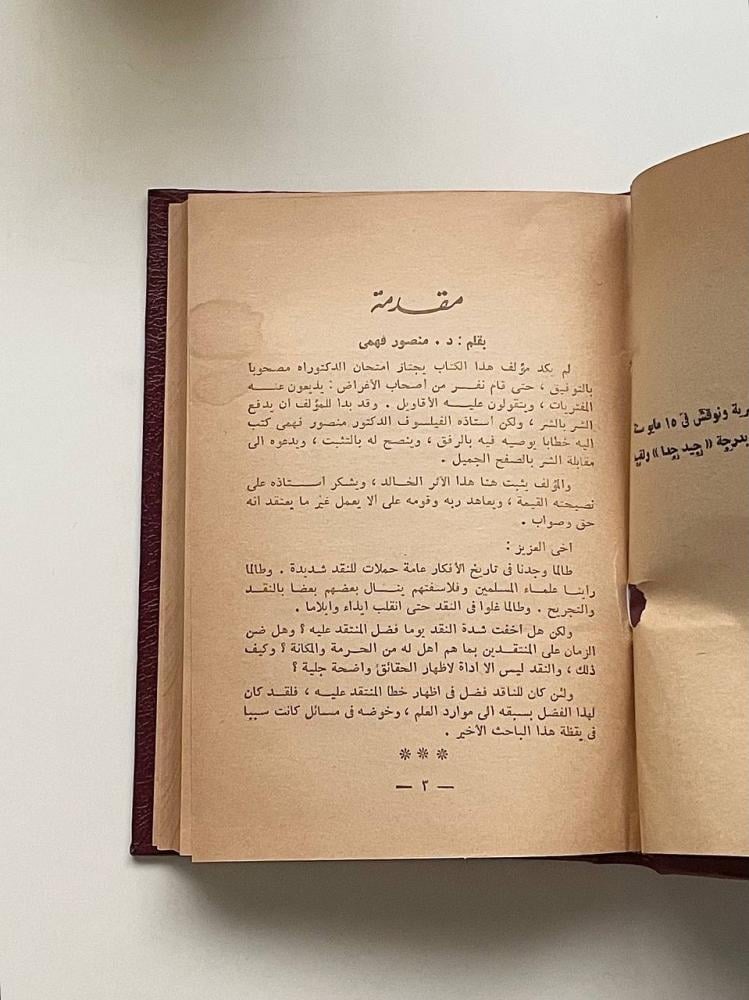 مقدمة
بقلم : د . منصور فهمى
لم يكد مؤلف هذا الكتاب يجتاز امتحان الدكتوراه مصحوبا
بالتوفيق ، حتى قام نفر من أصحاب الأغراض : يذيعون عنه
المفتريات ، ويتقولون عليه الأقاويل . وقد بدا للمؤلف أن يدفع
الشر بالشر ، ولكن أستاذه الفيلسوف الدكتور منصور فهمى كتب
اليه خطابا يوصيه فيه بالرفق ، وينصح له بالتثبت ، ويدعوه الى
مقابلة الشر بالصفح الجميل .
والمؤلف يثبت هنا هذا الأثر الخالد ، ويشكر أستاذه على
نصيحته القيمة ، ويعاهد ربه وقومه على ألا يعمل غير ما يعتقد أنه
حق وصواب .
أخى العزيز :
طالما وجدنا فى تاريخ الأفكار عامة حملات للنقد شديدة . وطالما
رأينا علماء المسلمين وفلاسفتهم ينال بعضهم بعضا بالنقد
والتجريح . وطالما غلوا فى النقد حتى انقلب ايذاء وايلاما .
ولكن هل أخفت شدة النقد يوما فضل المنتقد عليه ؟ وهل ضن
الزمان على المنتقدين بما هم أهل له من الحرمة والمكانة ؟ وكيف
ذلك ، والنقد ليس الا أداة لاظهار الحقائق واضحة جلية ؟
ولئن كان للناقد فضل فى اظهار خطأ المنتقد عليه ، فلقد كان
لهذا الفضل بسبقه الى موارد العلم ، وخوضه فى مسائل كانت سببا
فى يقظة هذا الباحث الأخير .
***
— ٣ —
رية ونوقش فى ١٥ مايو
بدرجة «جيد جدا»